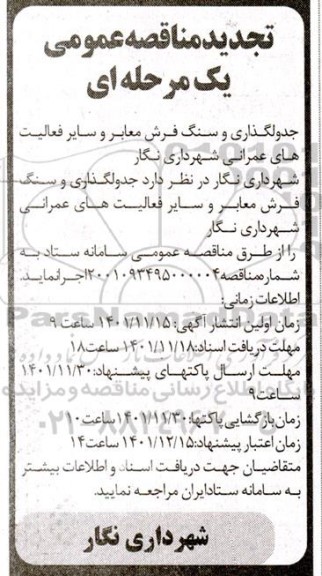 تجدید مناقصه عمومی
یک مرحله ای
جدولگذاری و سنگ فرش معابر و سایر فعالیت
های عمرانی شهرداری نگار
شهرداری نگار در نظر دارد جدولگذاری و سنگ
فرش معابر و سایر فعالیت های عمرانی
شهرداری نگار
را از طرق مناقصه عمومی سامانه ستاد به
شماره مناقصه ۲۰۰۱۰۹۳۴۹۵۰۰۰۰۰۴ اجرا نماید.
اطلاعات زمانی:
زمان اولین انتشار آگهی: ۱۴۰۱/۱۱/۱۵ ساعت ۹
مهلت دریافت اسناد: ۱۴۰۱/۱۱/۱۸ ساعت ۱۸
مهلت ارسال پاکتهای پیشنهاد: ۱۴۰۱/۱۱/۳۰
ساعت ۹
زمان بازگشایی پاکتها: ۱۴۰۱/۱۱/۳۰ ساعت ۱۰
زمان اعتبار پیشنهاد: ۱۴۰۱/۱۲/۱۵ ساعت ۱۴
متقاضیان جهت دریافت اسناد و اطلاعات بیشتر
به سامانه ستاد ایران مراجعه نمایید.
شهرداری نگار
ParsNamadData
پایگاه اطلاع رسانی مناقصه و مزایده